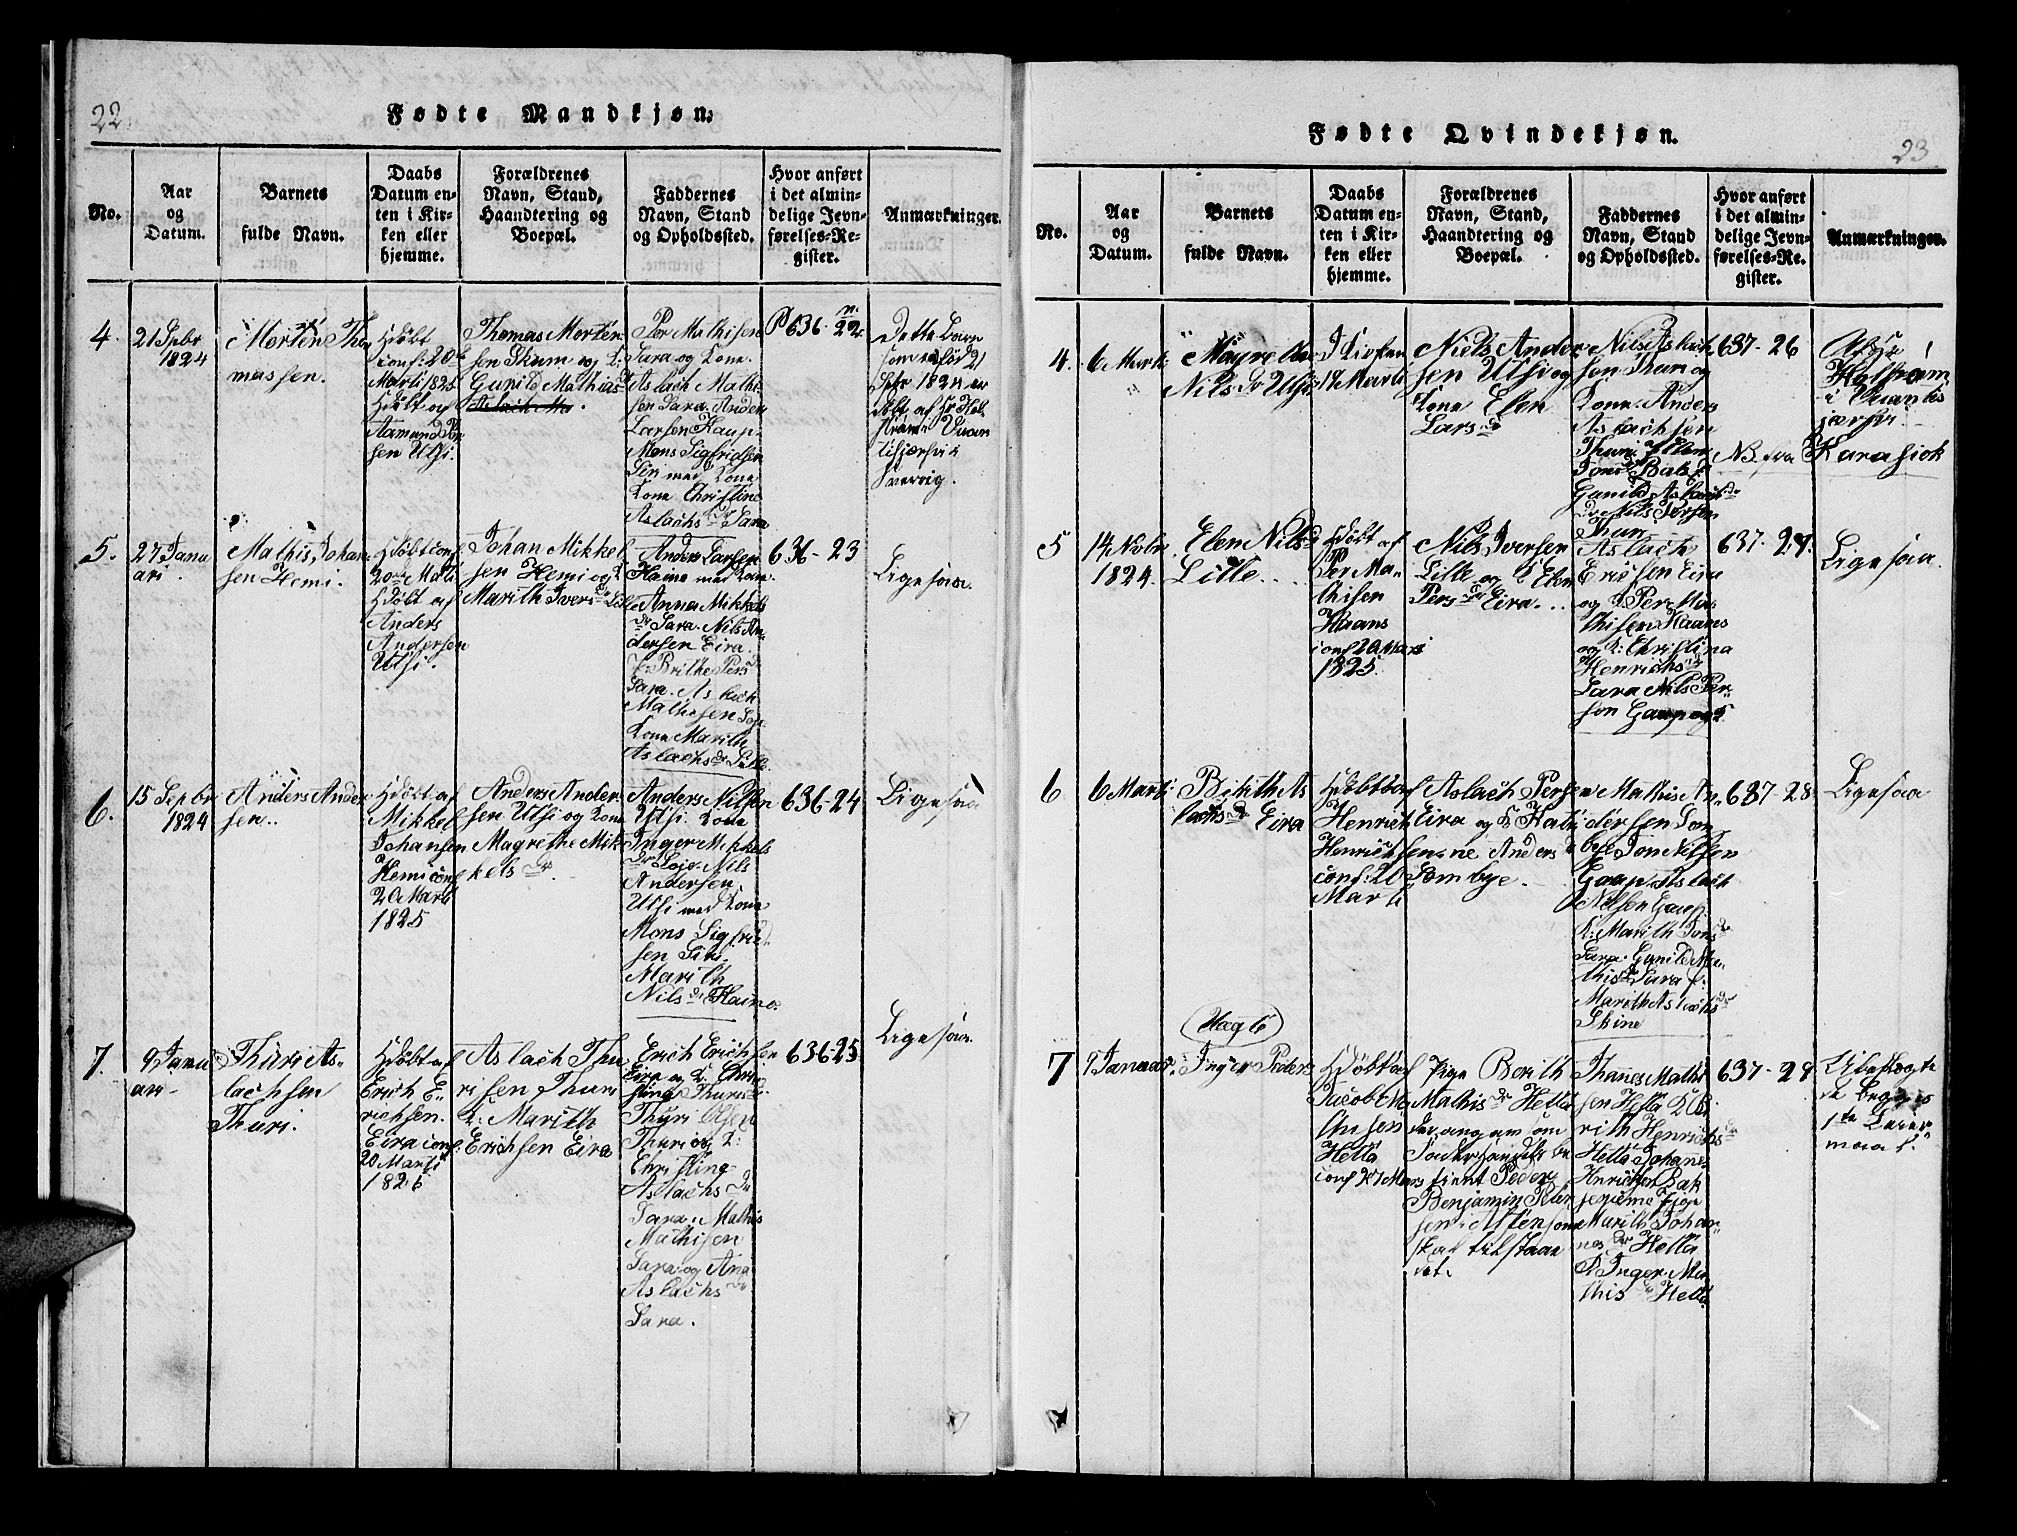 22.
Fødte Mandkjøn.
No.
Aar
og
Datum.
Barnets
fulde Navn.
Daabs
Datum en-
ten i Kir-
ken eller
hjemme.
Forældrenes
Navn, Stand,
Haandtering og
Boepæl.
Faddernes
Navn, Stand
og Opholdssted.
Hvor anført
i det almin-
delige Jevn-
førelses-Re-
gister.
Anmærkninger.
4.
21 Spbr
1824
Morten Tho
massen.
Hdøbt
conf: 20
Marti 1825
Hdøbt af
Aamund
sen Utsi.
Thomas Morten
sen Skum og
Gunild Mathis
Per Mathisen
Sara og Kone
Aslach Mathi
sen Sara. Anders
Larsen Kaup
Mons Sigfridsen
Siri med Kone
Kone Christine
Aslachs dr Sara
P 636-22
Dette Barn
som er föd 21
Spbr 1824 er
döbt af
5.
27 Janu
ari
Mathis Johan
sen Hemi.
Hdöbt conf
20 Marti
Hdöbt af
Anders
Andersen
Utsi.
Johan Mikkel
sen Hemi og K
Marith Ivers dr
Anders Larsen
Haino med Kone
Anna Mikkels
dr Sara. Nils An
dersen Eira.
Brithe Pers dr
Sara. Aslach
Mathisen
Kone Marith
Aslachs dr
636-23
Ligesaa.
6.
15 Sepbr
1824
Anders Ander
sen.
Hdöbt af
Mikkel
Johansen
Hemi conf
20 Marti
1825
Anders Ander
sen Utsi og Kone
Magrethe Mik
kels dr
Anders Nilsen
Utsi. Kone
Inger Mikkels
dr Nils
Andersen
Utsi med Kone
Mons Sigfrid
sen Siri.
Marith
Nils dr Haino
636-24
Ligesaa
7.
9 Janu
ari
Thuri As-
lachsen
Thuri.
Hdöbt af
Erich E-
richsen
Eira conf:
20 Marti
1825
Aslach Thu
risen Thuri
K: Marith
Erichsen Eira
Erich Erichsen
Eira og K. Chri
stine Thuris
Thuri Olsen
Thuri og K:
Christine
Aslachs dr
Sara. Mathis
Mathisen
Sara og Ana
Aslachs dr
Sara.
636-25
Ligesaa.
23.
Fødte Qvindekjøn.
No.
Aar
og
Datum.
Barnets
fulde Navn.
Daabs
Datum en-
ten i Kir-
ken eller
hjemme.
Forældrenes
Navn, Stand,
Haandtering og
Boepæl.
Faddernes
Navn, Stand
og Opholdssted.
Hvor anført
i det almin-
delige Jevn-
førelses-Re-
gister.
Anmærkninger.
4.
6 Marti
Nils dr Utsi
I Kirken
14 Marti
Niels Ander
sen Utsi og
Kone Elen
Lars dr
Nils Aslach
sen Thuri og
Kone. Anders
Aslachsen
Thuri
Gunild Aslach dr
Nils Iversen
Thuri
637-26
NB. fra Karasjok
5
14 Novbr
1824.
Elen Nils dr
Lille
Hdöbt af
Per Ma
thisen
Haans
conf 20 Mars
1825.
Nils Iversen
Lille og K Elen
Pers dr Eira.
Aslach
Ericsen Eira
og K Per Ma
thisen Haans
og K: Christina
Henrichs dr
Sara Nils Per
sen Gaup og K
637-27.
Ligesaa.
6
6 Marti
Birith As
lachs dr Eira
Hdöbt af
Henrich
Henrichsen
conf: 20
Marti
Aslach Persen
Eira og K Kathri
ne Anders dr
Sombye.
Mathis An
dersen Som
bye. Jon Nilsen
Gaup. Aslach
Nilsen Gaup.
K: Marith Jons dr
Sara. Gunild Ma
this dr Sara
Marith Aslachs dr
Skine
637-28
Ligesaa
7
9 Januar.
Inger Peders
Hdöbt af
Jacob Ma
thisen
Hetta
conf 27 Mars
Pige Berith
Mathis dr Hetta
der angav om
Peder
Benjamin Peder
sen i Alten som
skal tilstaae
det.
Thanes Mathi
sen Hetta K Be
rith Henrichs dr
Hetta Johanes
Henrichsen Bak
Marith Johan
nes dr Hetta
P Inger Ma
this dr Hetta
637-29
Ubeslægte
de begges
1te Leier
maal.